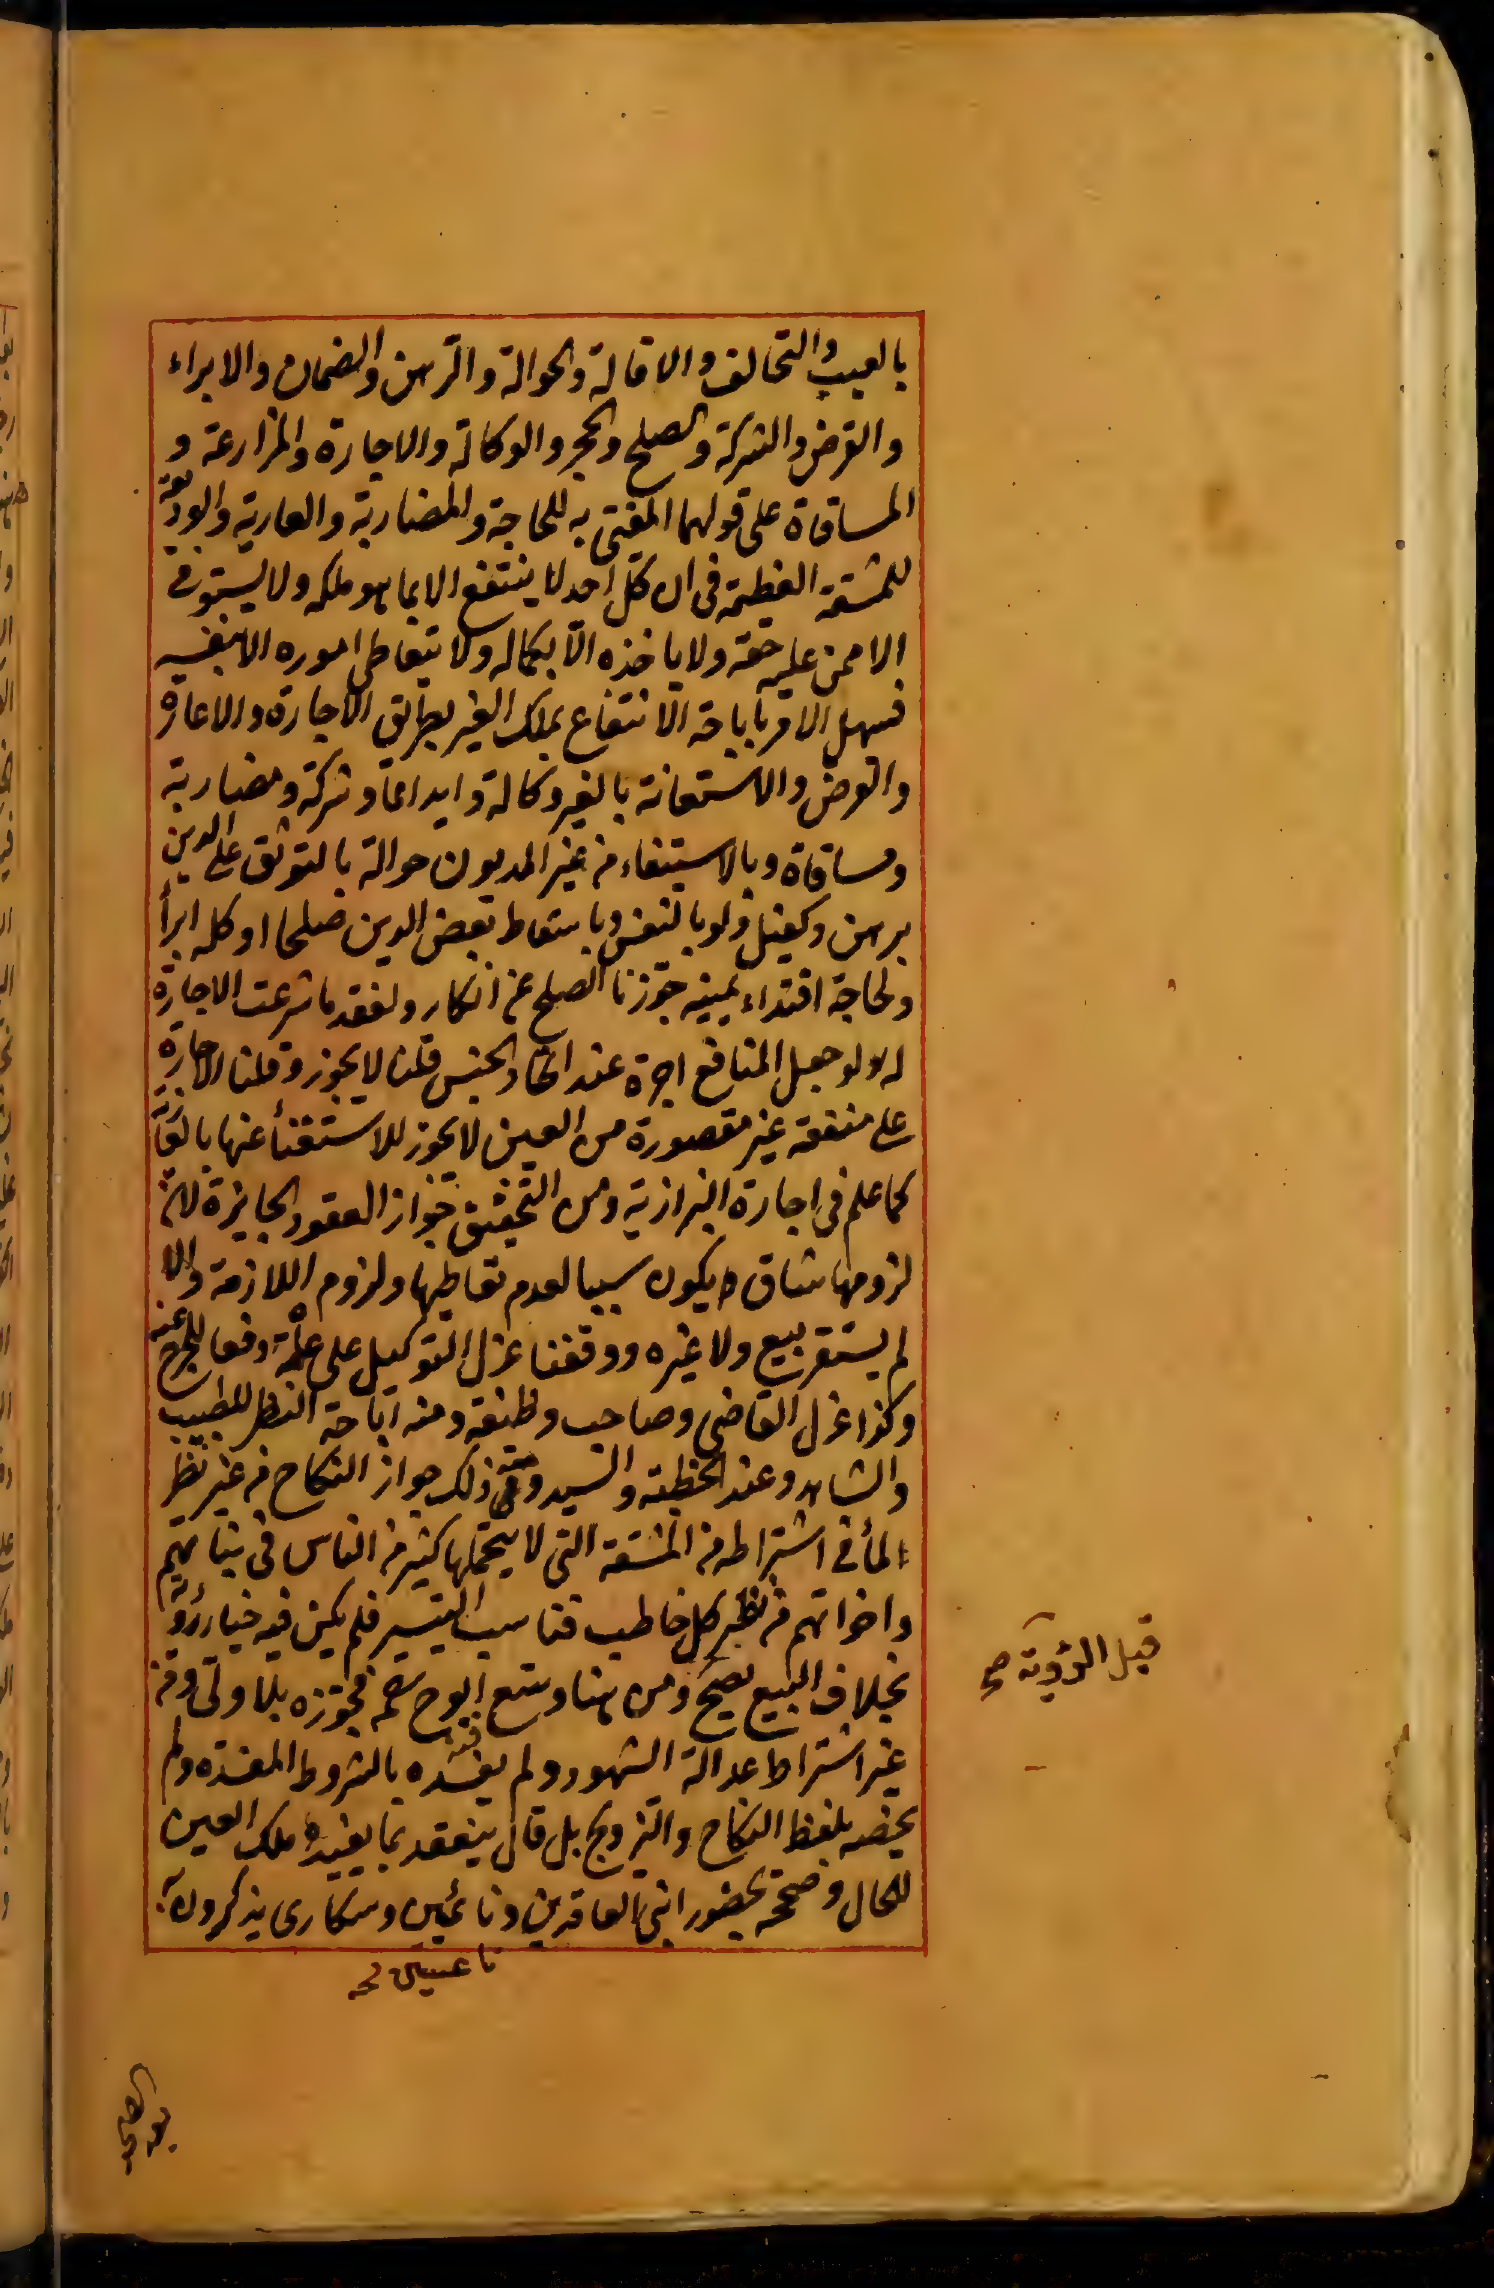 بالعيب والتحالف والاقالة والحوالة والرهن والضمان والابراء
والقرض والشركة والصلح والحجر والوكالة والاجارة والمزارعة و
المساقاة على قولهما المفتى به للحاجة والمضاربة والعارية والوديعة
للمشقة العظيمة فى ان كل احد لا ينتفع الا بما هو ملكه ولا يستوفى
الا ممن عليه حقه ولا ياخذه الا بكماله ولا يتعاطى اموره الا بنفسه
فسهل الامر باباحة الانتفاع بملك الغير بطريق الاجارة والاعارة
والقرض والاستعانة بالغير وكالة وايداعا وشركة ومضاربة
ومساقاة وبالاستيفاء من غير المديون حوالة بالتوثق على الدين
برهن وكفيل ولو بالنفس وباسقاط بعض الدين صلحا او كله ابرأ
ولحاجة افتداء يمينه جوزنا الصلح عن انكار ولفقد ما شرعت الاجارة
له لو جعل المنافع اجرة عند اتحاد الجنس قلنا لا يجوز وقلنا الاجارة
على منفعة غير مقصورة من العين لا يجوز للاستغنأ عنها بالعارية
كما علم فى اجارة البزازية ومن التخفيف جواز العقود الجايزة لان
لزومها شاق ويكون سببا لعدم تعاطيها ولزوم اللازمة والا
لم يستقر بيع ولا غيره ووقفنا عزل التوكيل على علمه دفعا للحرج عنه
وكذا عزل القاضى وصاحب وظيفة ومنه اباحة النظر للطبيب
والشاهد وعند الخطبة والسيد ومن ذلك جواز النكاح من غير نظر
لما فى اشتراطه من المشقة التى لا يتحملها كثير من الناس فى بناتهم
واخواتهم من نظر كل خاطب فناسب التيسير فلم يكن فيه خيار رؤية
بخلاف البيع يصح ومن هنا وسع ابوح رحمه فجوزه بلا ولى ومن
غير اشتراط عدالة الشهود ولم يفسده بالشروط المفسده ولم
يخصه بلفظ النكاح والتزويج بل قال ينعقد بما يفيده ملك العين
للحال وصححه بحضور ابنى العاقدين ونائمين وسكارى يذكرونه
ناعسين نخ
قبل الرؤية صح